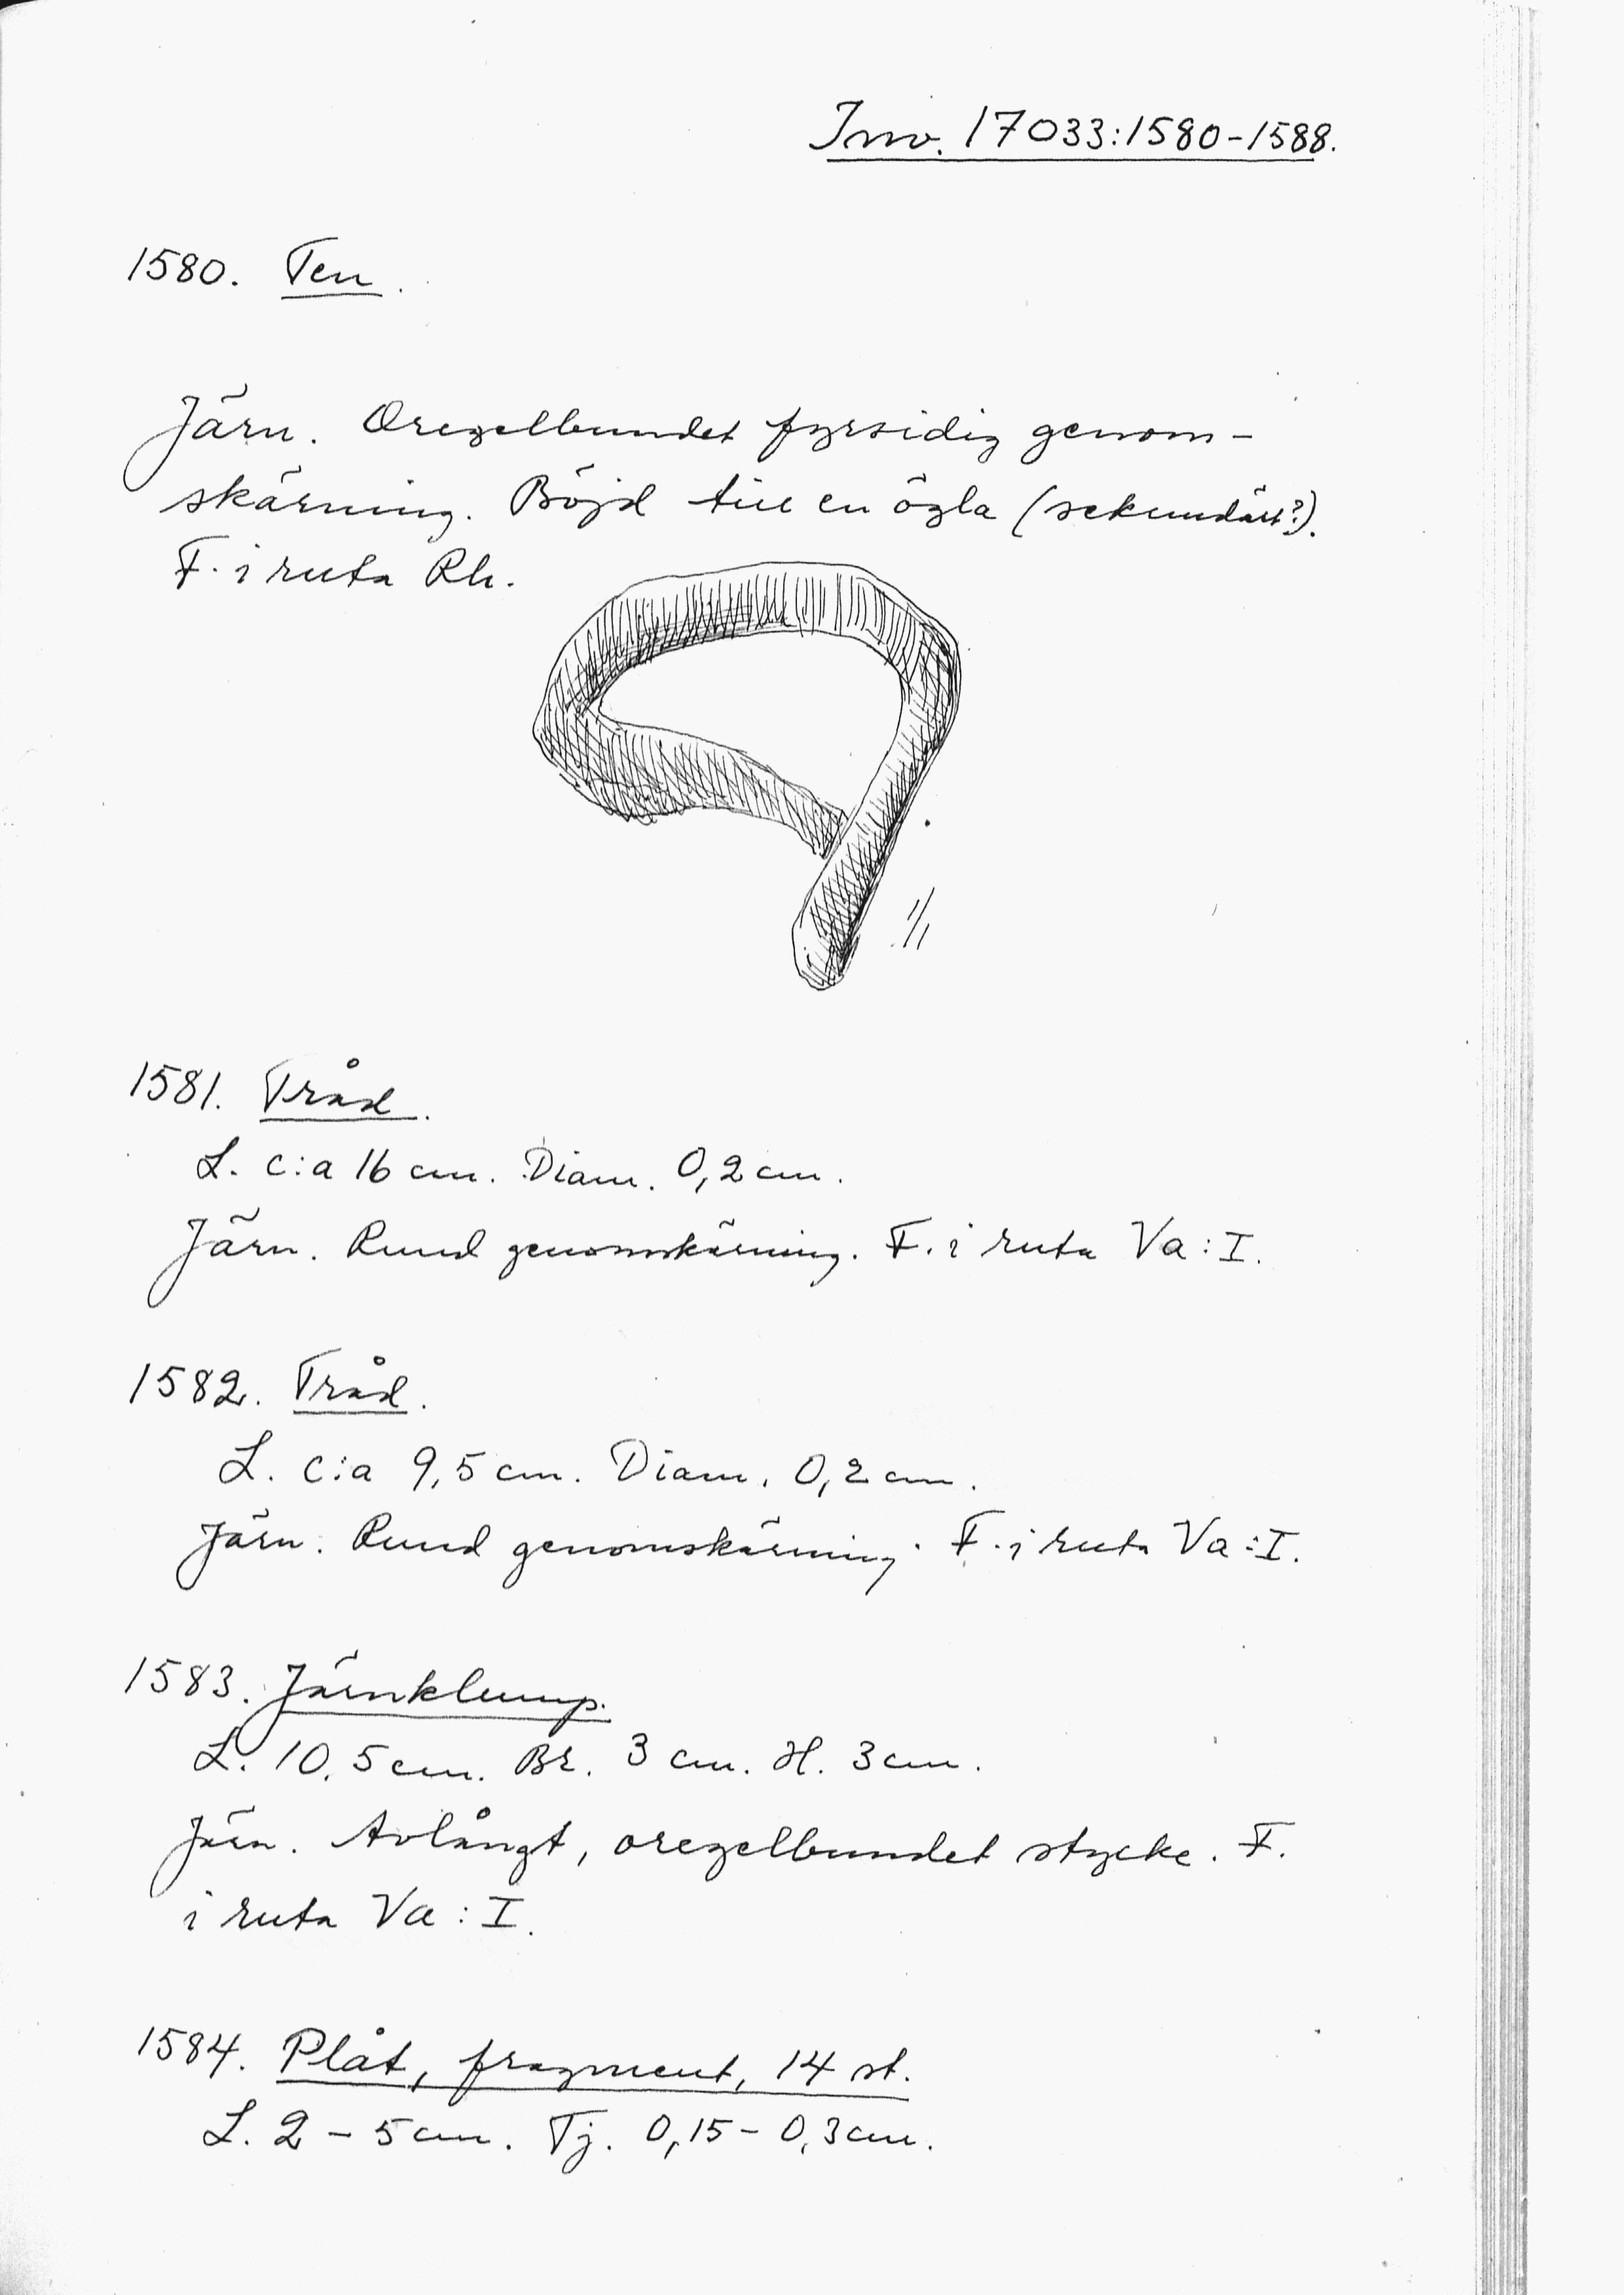 Inv. 17033:1580-1588.
1580. Ten.
Järn. Oregelbundet fyrsidig genom-
skärning. Böjd till en ögla (sekundärt?).
F. i ruta Rh.
1/1
1581. Tråd.
L. c:a 16 cm. Diam. 0,2 cm.
Järn. Rund genomskärning. F. i ruta Va:I.
1582. Tråd.
L. c:a 9,5 cm. Diam. 0,2 cm.
Järn. Rund genomskärning. F. i ruta Va:I.
1583. Järnklump.
L. 10,5 cm. Br. 3 cm. H. 3 cm.
Järn. Avlångt, oregelbundet stycke. F.
i ruta Va:I.
1584. Plåt, fragment, 14 st.
L. 2-5 cm. Tj. 0,15-0,3 cm.